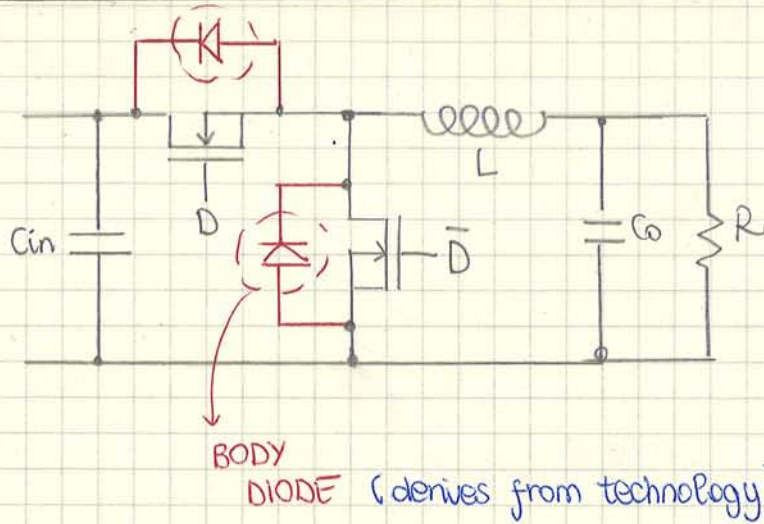 L
D
Cin
D̅
Co
R
BODY
DIODE (derives from technology)